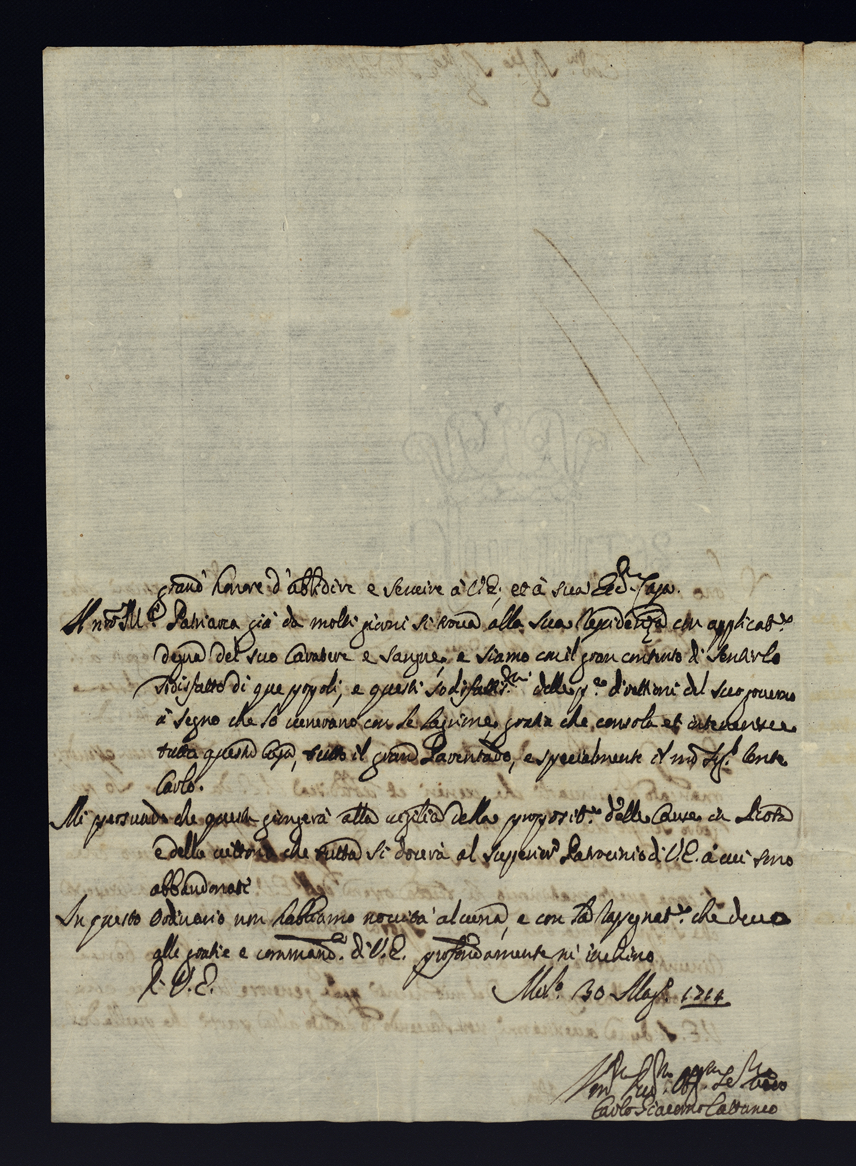 grand' honore d'abbidire e servire à V.E. et à sua Ecc.ma Casa.
Il nro Ill.mo Patriarca già da molti giorni si trova alla sua Residenza con applicat.ne
degna del suo Carattere e sangue, e siamo con il gran contento di sentirlo
sodisfatto di que popoli, e questi sodisfatti.mi delle p.e direttioni del suo governo
à segno che lo venerano con le lagrime, gratia che consola et
tutta questa Casa, tutto il grand Parentado, e specialmente il mio Sig.r Conte
Carlo.
Mi persuado che questa giongerà alla vigilia della proposit.ne delle Cause in
e delle vittorie che tutta si doverà al Superior Patrocinio di V.E. à cui sono
abbandonati
In questo Ordinario non habbiamo novità alcuna, e con la rassegnat.ne che devo
alle gratie e command.ti di V.E. profondamente m'inchino
D. V. E. Mil.o 30 Mag.o 1714
Carlo Giacomo Cattaneo